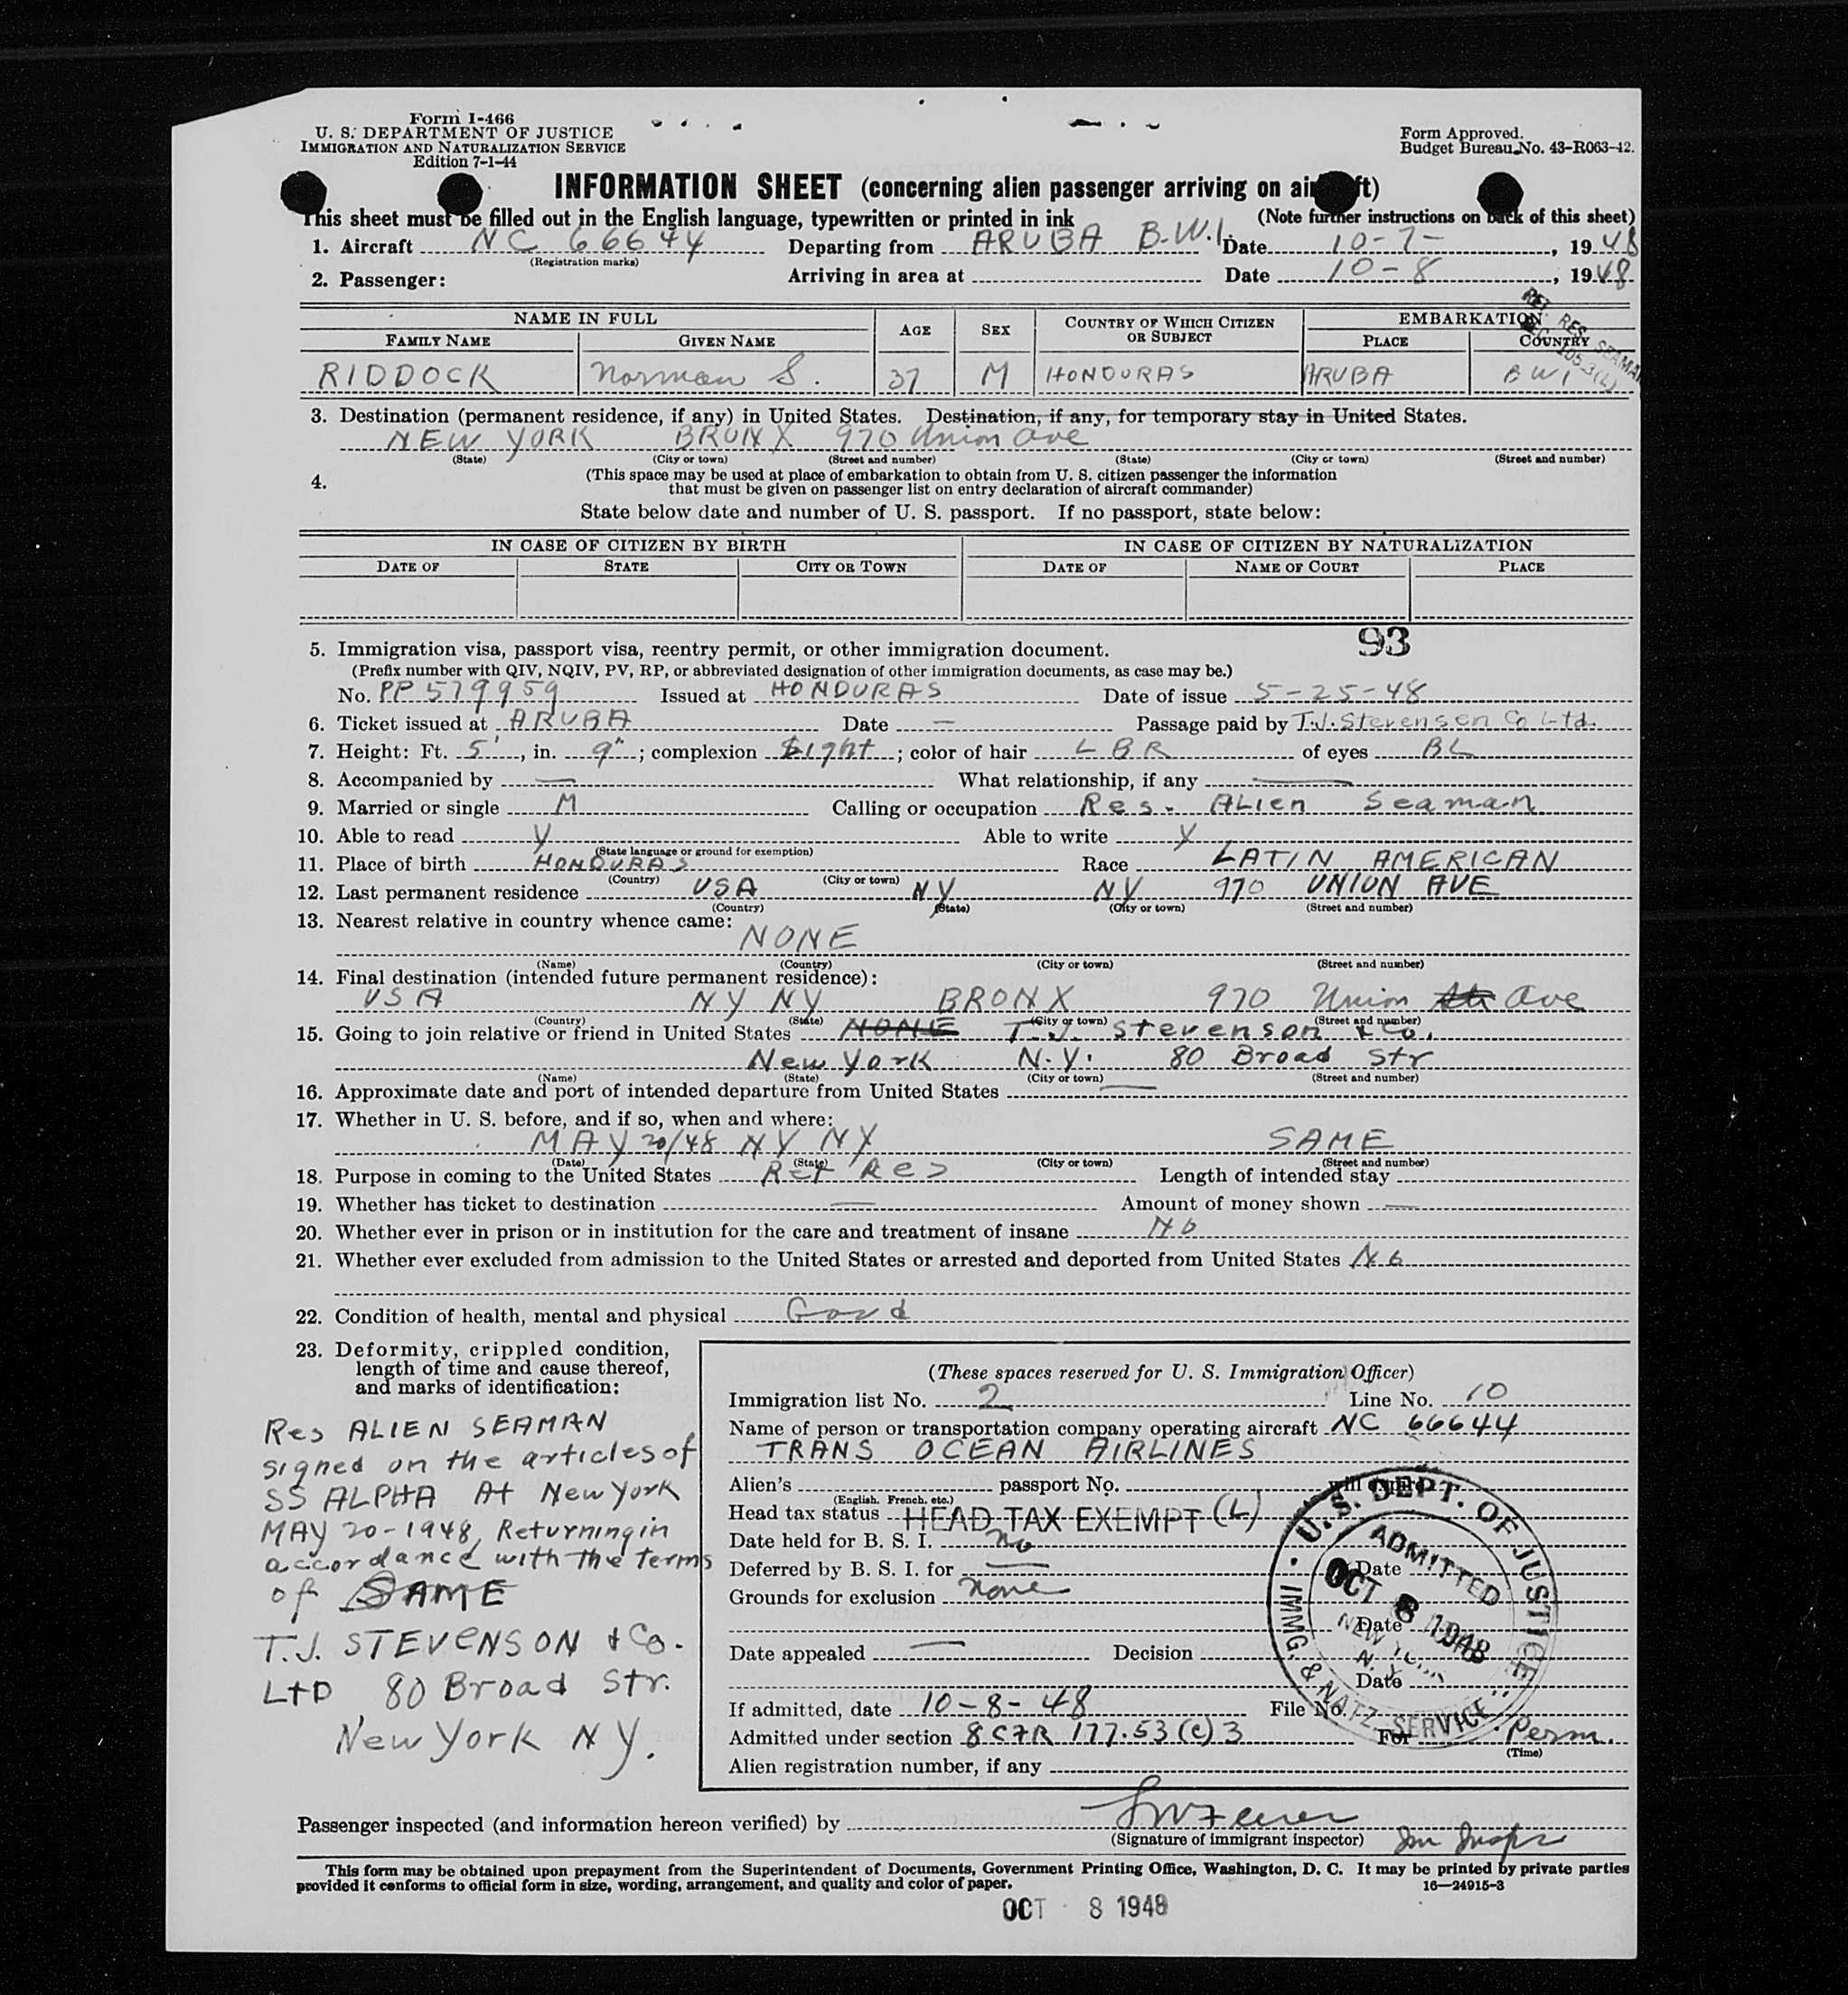 Form I-466
U. S. DEPARTMENT OF JUSTICE
IMMIGRATION AND NATURALIZATION SERVICE
Edition 7-1-44
Form Approved.
Budget Bureau No. 43-R063-42.
INFORMATION SHEET (concerning alien passenger arriving on aircraft)
This sheet must be filled out in the English language, typewritten or printed in ink (Note further instructions on back of this sheet)
1. Aircraft NC 66644 Departing from ARUBA B.W.I. Date 10-7-, 1948
(Registration marks)
2. Passenger: Arriving in area at Date 10-8, 1948
RET. RES. SEAMAN
NAME IN FULL AGE SEX COUNTRY OF WHICH CITIZEN OR SUBJECT EMBARKATION
FAMILY NAME GIVEN NAME PLACE COUNTRY
RIDDOCK Norman S. 37 M HONDURAS ARUBA BWI
3. Destination (permanent residence, if any) in United States. Destination, if any, for temporary stay in United States.
NEW YORK BRONX 970 Union Ave
(State) (City or town) (Street and number) (State) (City or town) (Street and number)
4. (This space may be used at place of embarkation to obtain from U. S. citizen passenger the information
that must be given on passenger list on entry declaration of aircraft commander)
State below date and number of U. S. passport. If no passport, state below:
IN CASE OF CITIZEN BY BIRTH IN CASE OF CITIZEN BY NATURALIZATION
DATE OF STATE CITY OR TOWN DATE OF NAME OF COURT PLACE
93
5. Immigration visa, passport visa, reentry permit, or other immigration document.
(Prefix number with QIV, NQIV, PV, RP, or abbreviated designation of other immigration documents, as case may be.)
No. PP 579959 Issued at HONDURAS Date of issue 5-25-48
6. Ticket issued at ARUBA Date — Passage paid by T.J. Stevenson Co Ltd.
7. Height: Ft. 5', in. 9"; complexion Light; color of hair LBR of eyes BL
8. Accompanied by — What relationship, if any —
9. Married or single M Calling or occupation Res. Alien Seaman
10. Able to read Y Able to write Y
(State language or ground for exemption)
11. Place of birth HONDURAS Race LATIN AMERICAN
(Country) (City or town)
12. Last permanent residence USA NY NY 970 UNION AVE
(Country) (State) (City or town) (Street and number)
13. Nearest relative in country whence came:
NONE
(Name) (Country) (City or town) (Street and number)
14. Final destination (intended future permanent residence):
USA NY NY BRONX 970 Union Ave
(Country) (State) (City or town) (Street and number)
15. Going to join relative or friend in United States NONE T.J. Stevenson & Co.
New York N.Y. 80 Broad Str
(Name) (State) (City or town) (Street and number)
16. Approximate date and port of intended departure from United States —
17. Whether in U. S. before, and if so, when and where:
MAY 20/48 NY NY SAME
(Date) (State) (City or town) (Street and number)
18. Purpose in coming to the United States Ret Res Length of intended stay
19. Whether has ticket to destination — Amount of money shown —
20. Whether ever in prison or in institution for the care and treatment of insane No
21. Whether ever excluded from admission to the United States or arrested and deported from United States No
22. Condition of health, mental and physical Good
23. Deformity, crippled condition,
length of time and cause thereof,
and marks of identification:
Res ALIEN SEAMAN
signed on the articles of
SS ALPHA At New York
MAY 20-1948, Returning in
accordance with the terms
of SAME
T.J. STEVENSON & Co.
LTD, 80 Broad Str.
New York NY.
(These spaces reserved for U. S. Immigration Officer)
Immigration list No. 2 Line No. 10
Name of person or transportation company operating aircraft NC 66644
TRANS OCEAN AIRLINES
Alien's passport No. will expire
(English, French, etc.)
Head tax status HEAD TAX EXEMPT (L)
Date held for B. S. I. no
Deferred by B. S. I. for — Date
Grounds for exclusion none
Date
Date appealed — Decision
Date
If admitted, date 10-8-48 File No.
Admitted under section 8 CFR 177.53(c)3 For Perm.
(Time)
Alien registration number, if any
U. S. DEPT. OF JUSTICE
ADMITTED
OCT 8 1948
NEW YORK
N. Y.
IMMG. & NATZ. SERVICE
Passenger inspected (and information hereon verified) by
(Signature of immigrant inspector)
This form may be obtained upon prepayment from the Superintendent of Documents, Government Printing Office, Washington, D. C. It may be printed by private parties
provided it conforms to official form in size, wording, arrangement, and quality and color of paper. 16—24915-3
OCT 8 1948